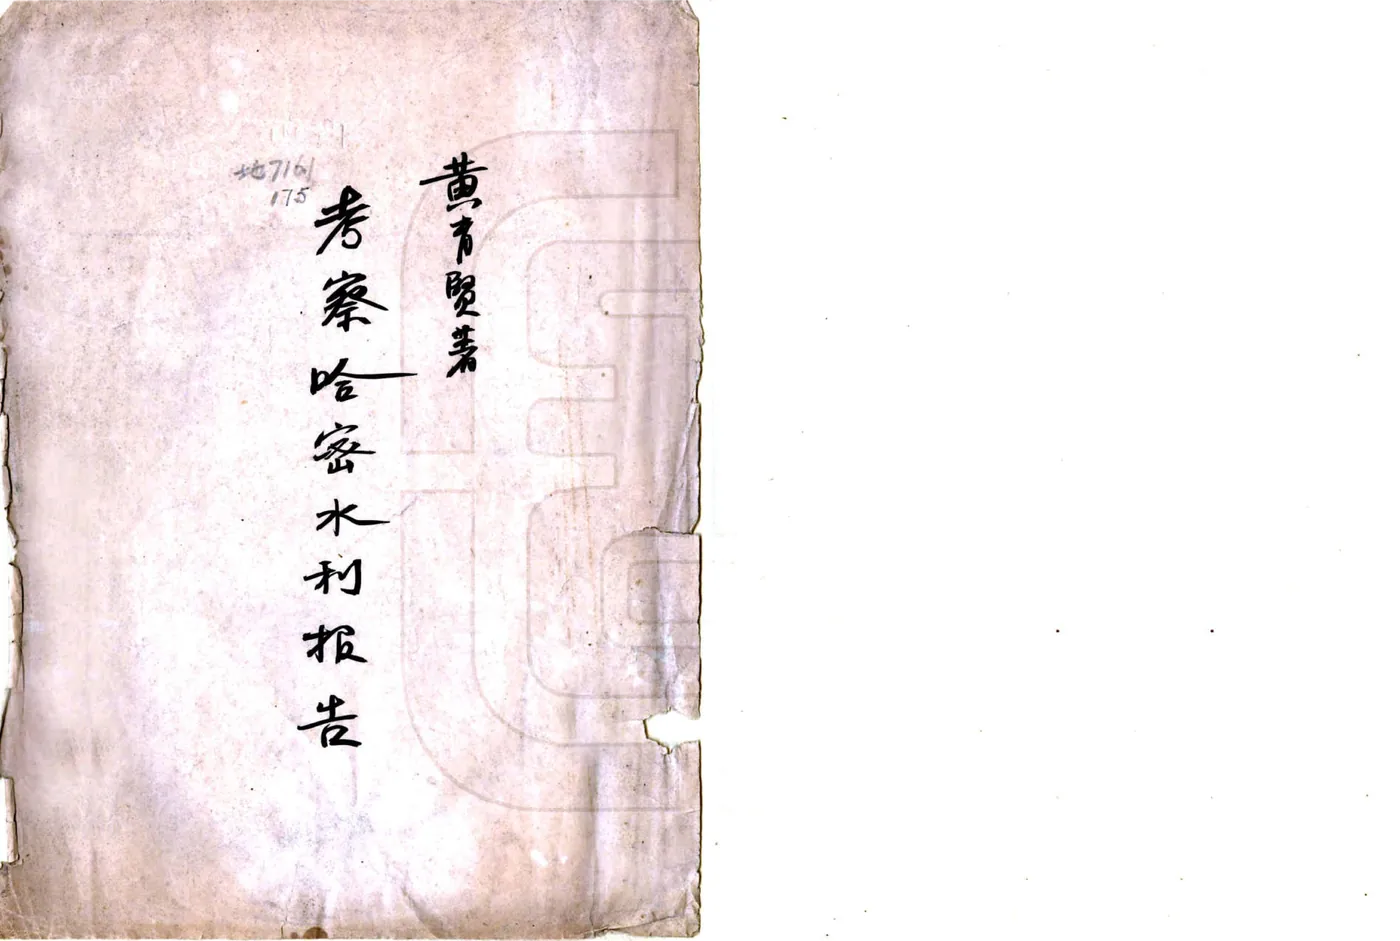 黄育賢著
考察哈密水利报告
地7161
175